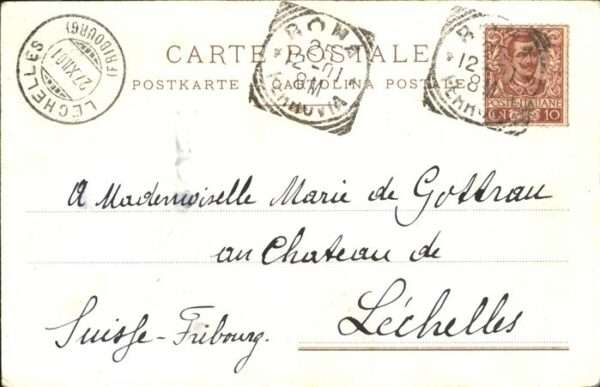 CARTE POSTALE
POSTKARTE CARTOLINA POSTALE
LECHELLES
(FRIBOURG)
27 XII 01
ROMA
12-01
8M
FERROVIA
12
8M
POSTE ITALIANE
10
A Mademoiselle Marie de Gottrau
au Chateau de
Léchelles
Suisse-Fribourg.